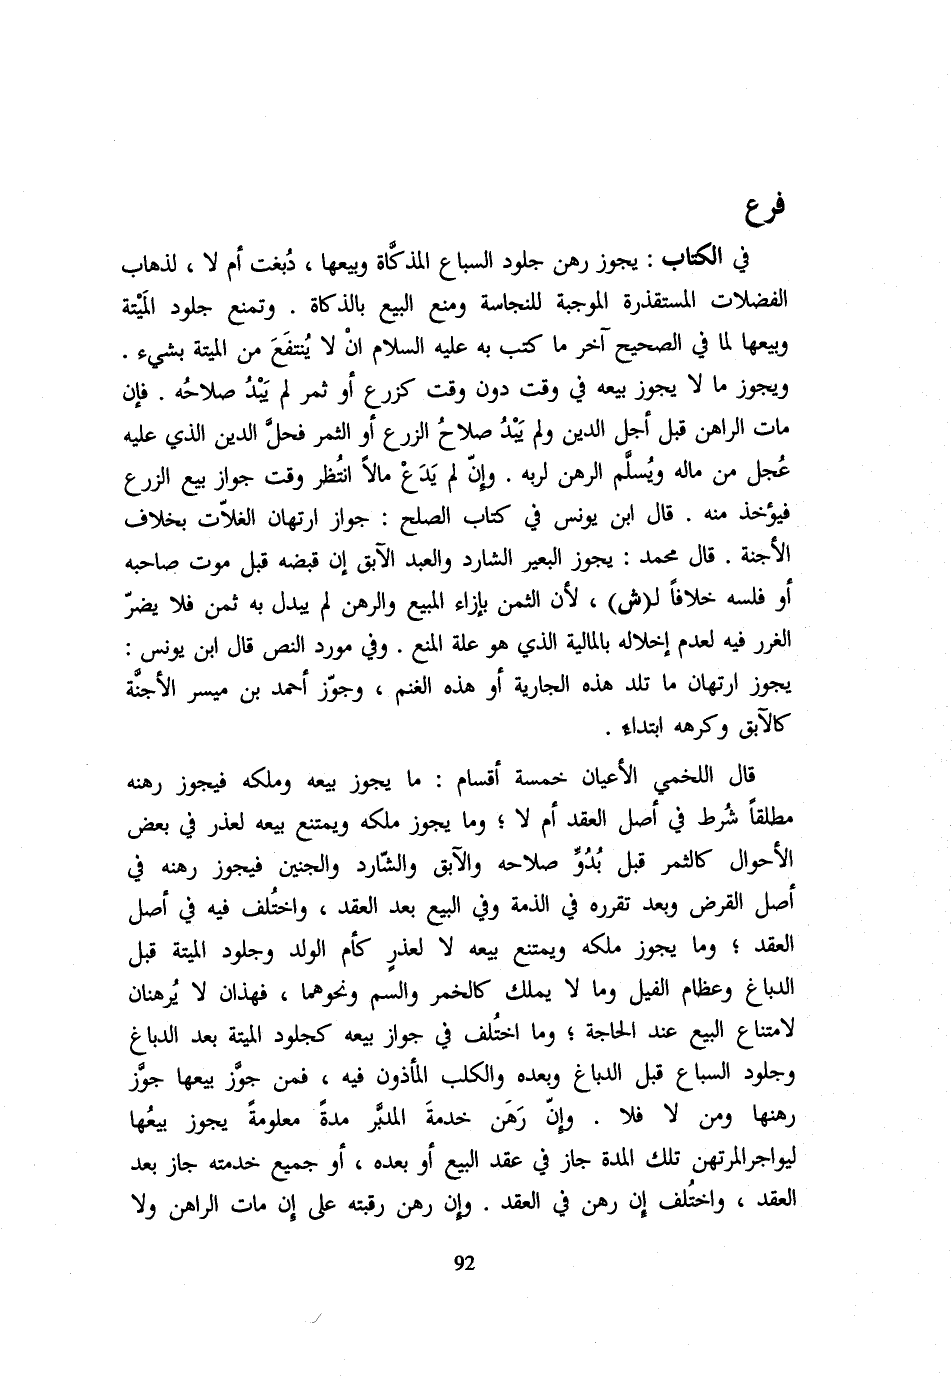 فرع
في الكتاب : يجوز رهن جلود السباع المذكَّاة وبيعها ، دُبغت أم لا ، لذهاب
الفضلات المستقذرة الموجبة للنجاسة ومنع البيع بالذكاة . وتمنع جلود المَيْتة
وبيعها لما في الصحيح آخر ما كتب به عليه السلام انْ لا يُنتفَعَ من الميتة بشيء .
ويجوز ما لا يجوز بيعه في وقت دون وقت كزرع أو ثمر لم يَبْدُ صلاحُه . فإن
مات الراهن قبل أجل الدين ولم يَبْدُ صلاحُ الزرع أو الثمر فحلَّ الدين الذي عليه
عُجل من ماله ويُسلَّم الرهن لربه . وإنّ لم يَدَعْ مالاً انتُظر وقت جواز بيع الزرع
فيؤخذ منه . قال ابن يونس في كتاب الصلح : جواز ارتهان الغلاّت بخلاف
الأجنة . قال محمد : يجوز البعير الشارد والعبد الآبق إن قبضه قبل موت صاحبه
أو فلسه خلافاً لـ(ش) ، لأن الثمن بإزاء المبيع والرهن لم يبدل به ثمن فلا يضرّ
الغرر فيه لعدم إخلاله بالمالية الذي هو علة المنع . وفي مورد النص قال ابن يونس :
يجوز ارتهان ما تلد هذه الجارية أو هذه الغنم ، وجوّز أحمد بن ميسر الأجنَّة
كالآبق وكرهه ابتداء .
قال اللخمي الأعيان خمسة أقسام : ما يجوز بيعه وملكه فيجوز رهنه
مطلقاً شُرط في أصل العقد أم لا ؛ وما يجوز ملكه ويمتنع بيعه لعذر في بعض
الأحوال كالثمر قبل بُدُوِّ صلاحه والآبق والشّارد والجنين فيجوز رهنه في
أصل القرض وبعد تقرره في الذمة وفي البيع بعد العقد ، واختُلف فيه في أصل
العقد ؛ وما يجوز ملكه ويمتنع بيعه لا لعذرٍ كأم الولد وجلود الميتة قبل
الدباغ وعظام الفيل وما لا يملك كالخمر والسم ونحوهما ، فهذان لا يُرهنان
لامتناع البيع عند الحاجة ؛ وما اختُلف في جواز بيعه كجلود الميتة بعد الدباغ
وجلود السباع قبل الدباغ وبعده والكلب المأذون فيه ، فمن جوَّز بيعها جوَّز
رهنها ومن لا فلا . وإنّ رَهَن خدمةَ المدبَّر مدةً معلومةً يجوز بيعُها
ليواجرالمرتهن تلك المدة جاز في عقد البيع أو بعده ، أو جميع خدمته جاز بعد
العقد ، واختُلف إن رهن في العقد . وإن رهن رقبته على إن مات الراهن ولا
92